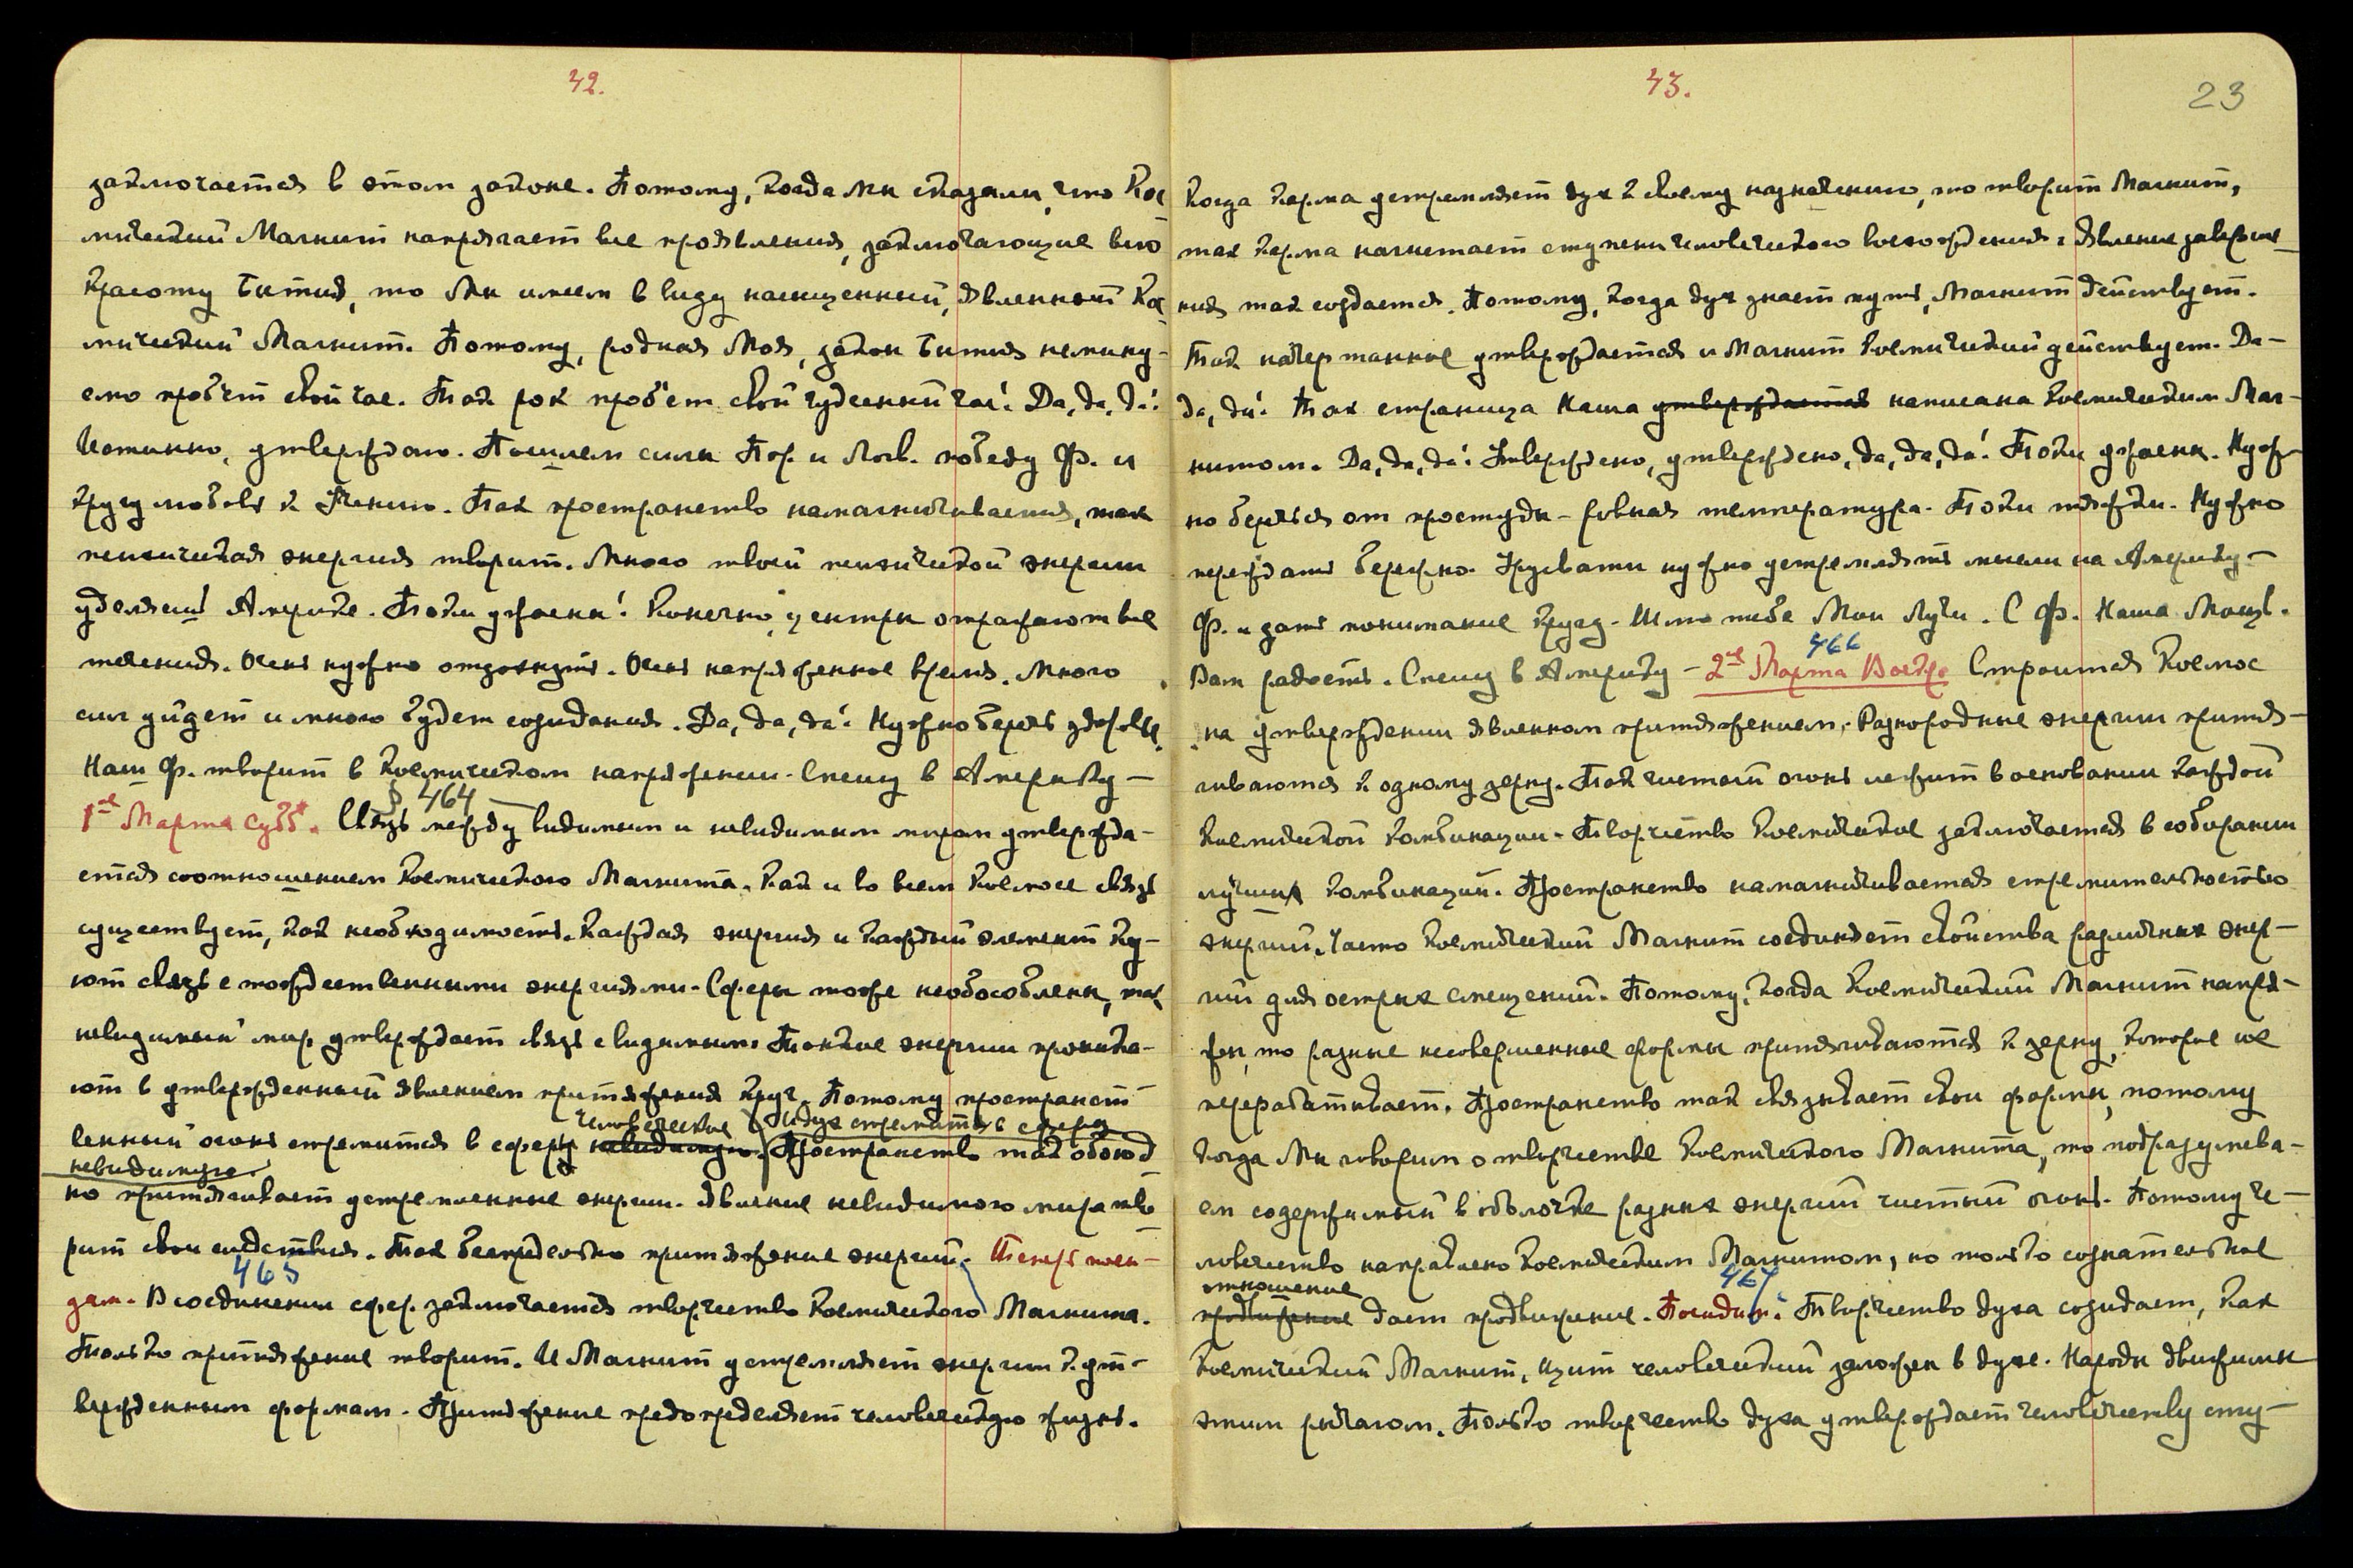 42.
заключается в этом законе. Потому, когда Мы сказали, что Кос
мический Магнит напрягает все проявления, заключающие всю
красоту Бытия, то Мы имеем в виду насыщенный, явленный Кос
мический Магнит. Потому, родная Моя, закон Бытия немину-
емо пробьет свой час. Так рок пробьет свой чудесный час! Да, да, да!
Истинно, утверждаю. Пошлем силы Пор. и Лог. победу Ф. и
кругу любовь к Учению. Так пространство намагничивается, так
психическая энергия творит. Много твоей психической энергии
уделяешь Америке. Токи утроены! Конечно, центры отражают все
течения. Очень нужно отдохнуть. Очень напряженное время. Много
сил уйдет и много будет созидания. Да, да, да! Нужно беречь здоровье.
Наш Ф. творит в Космическом напряжении. Спешу в Америку —
§ 464
1-ое Марта субб. Связь между видимым и невидимым миром утвержда-
ется соотношением Космического Магнита. Как и во всем Космосе связь
существует, как необходимость. Каждая энергия и каждый элемент ку-
ют связь с тождественными энергиями. Сферы тоже необособлены, так
невидимый мир утверждает связь с видимым. Тонкие энергии проника-
ют в утвержденный явлением притяжения круг. Потому пространст
человеческие И дух стремится в сферу
венный огонь стремится в сферы невидимую. Пространство так обоюд
невидимую.
но притягивает устремленные энергии. Явление невидимого мира тво
рит свои следствия. Так беспредельно притяжение энергий. Теперь поси-
465
дим. В соединении сфер заключается творчество Космического Магнита.
Только притяжение творит. И Магнит устремляет энергии к ут-
вержденным формам. Притяжение предопределяет человеческую жизнь.
43.
23
Когда карма устремляет дух к своему назначению, то творит Магнит,
так карма нагнетает ступени человеческого восхождения. Явление заверше-
ния так создается. Потому, когда дух знает путь, Магнит действует.
Так начертанное утверждается и Магнит Космический действует. Да-
да, да! Так страница Наша утверждается написана Космическим Маг-
нитом. Да, да, да! Утверждено, утверждено, да, да, да! Токи утроены. Нуж-
но беречься от простуды - ровная температура. Токи тяжки. Нужно
переждать бережно. Урусвати нужно устремлять мысли на Америку —
Ф. и дать понимание кругу. Шлю тебе Мои Лучи. С Ф. Наша Мощь.
466
Вам радость. Спешу в Америку — 2-ое Марта Воскр. Строится Космос
на утверждении явленном притяжением. Разнородные энергии притя-
гиваются к одному зерну. Так чистый огонь лежит в основании каждой
космической комбинации. Творчество Космическое заключается в собирании
лучших комбинаций. Пространство намагничивается стремительностью
энергий. Часто Космический Магнит соединяет свойства различных энер-
гий для острых смещений. Потому, когда Космический Магнит напря-
жен, то разные несовершенные формы притягиваются к зерну, которое их
перерабатывает. Пространство так связывает свои формы, потому
когда Мы говорим о творчестве Космического Магнита, то подразумева-
ем содержимый в оболочке разных энергий чистый огонь. Потому че-
ловечество направлено Космическим Магнитом, но только сознательное
отношение 467
продвижение дает продвижение. Посидим. Творчество духа созидает, как
Космический Магнит. Щит человеческий заложен в духе. Народы движимы
этим рычагом. Только творчество духа утверждает человечеству сту-